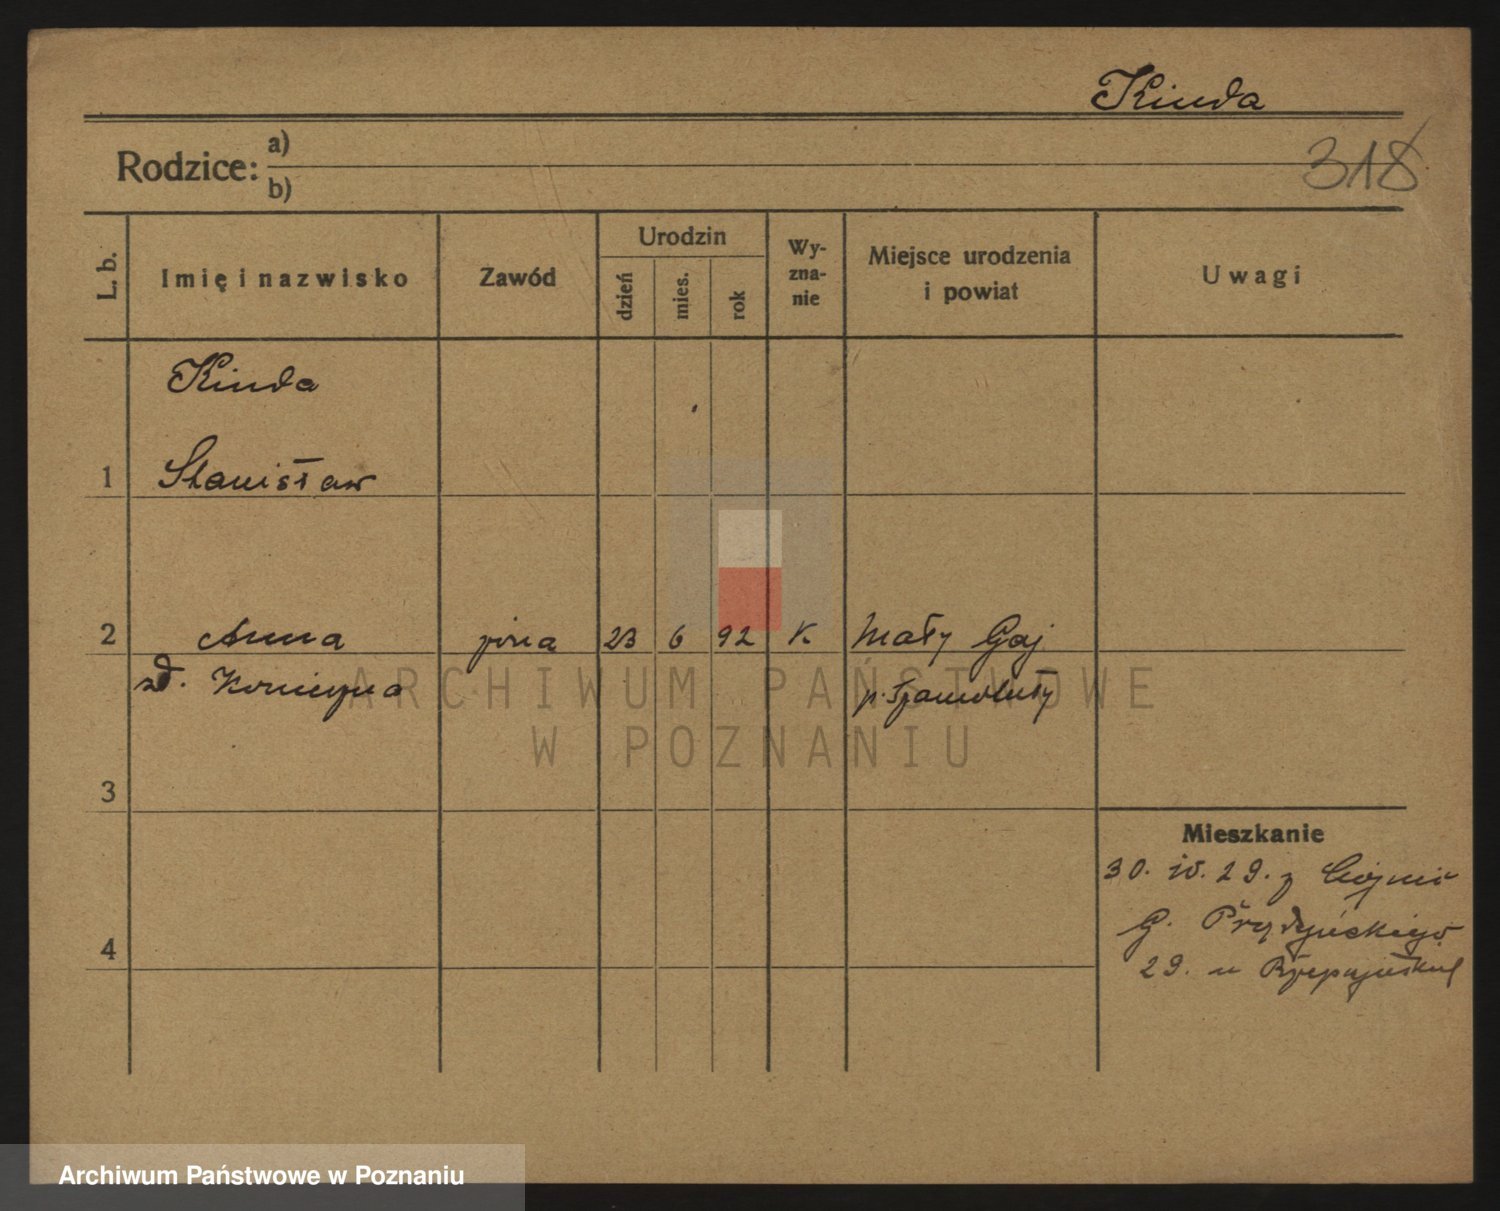 Kinda
318
Rodzice:
a)
b)
L. b.
Imię i nazwisko
Zawód
Urodzin
dzień
mies.
rok
Wy-
zna-
nie
Miejsce urodzenia
i powiat
Uwagi
Kinda
1 Stanisław
2 Anna żona 23 6 92 K. Mały Gaj
zd. Konieczna p. Szamotuły
ARCHIWUM PAŃSTWOWE
W POZNANIU
3
Mieszkanie
30. IV. 29. z
G. Prądzyńskiego
4
29. u
Archiwum Państwowe w Poznaniu